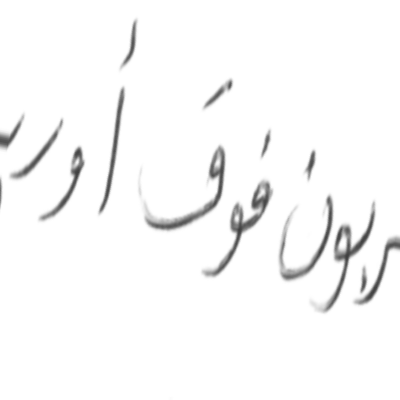 ربون فوق أور